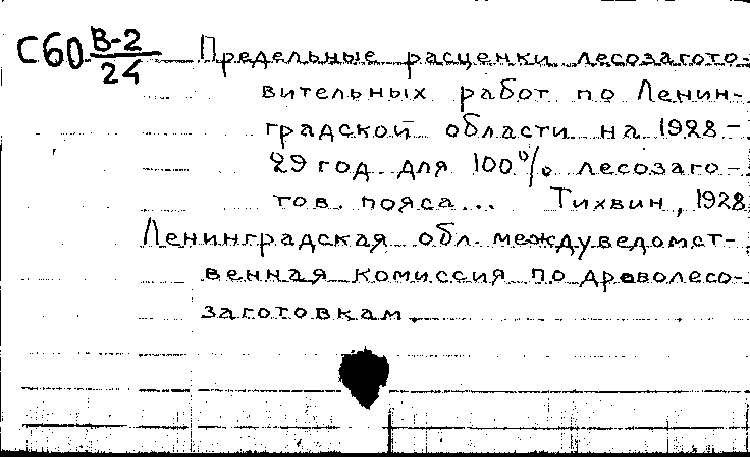 С60 В-2/24 Предельные расценки лесозагото-
вительных работ по Ленин-
градской области на 1928-
29 год для 100% лесозаго-
тов. пояса... Тихвин, 1928
Ленинградская обл. междуведомст-
венная комиссия по дроволесо-
заготовкам.